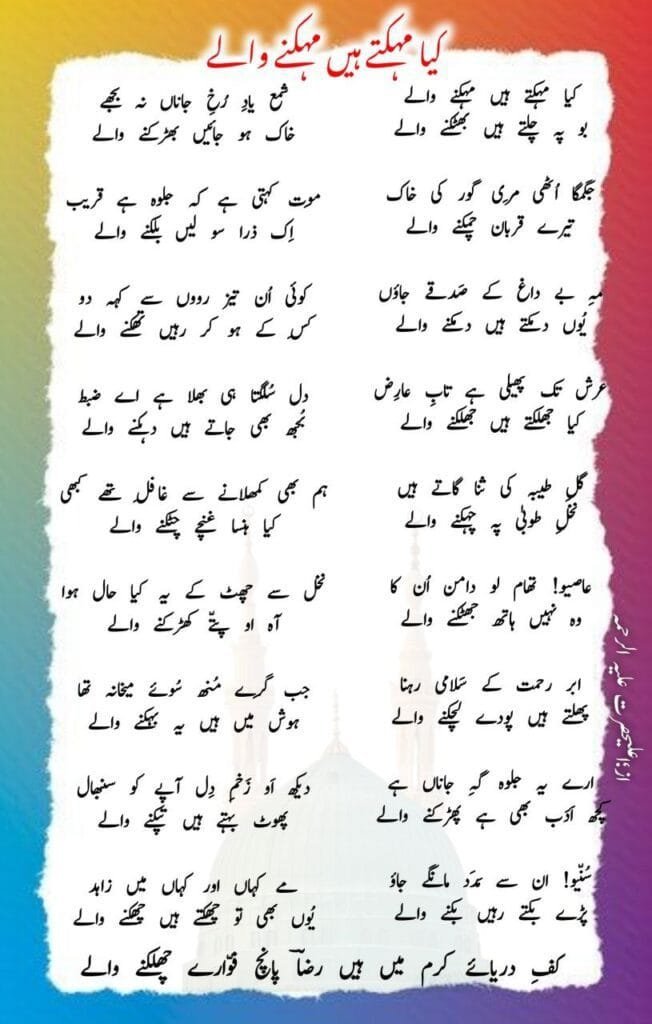 کیا مہکتے ہیں مہکنے والے
کیا مہکتے ہیں مہکنے والے
بو پہ چلتے ہیں بھٹکنے والے
جگمگا اُٹھی مرِی گور کی خاک
تیرے قربان چمکنے والے
مہِ بے داغ کے صَدقے جاؤں
یُوں دمکتے ہیں دمکنے والے
عرش تک پھیلی ہے تابِ عارِض
کیا جھلکتے ہیں جھلکنے والے
گلِ طیبہ کی ثنا گاتے ہیں
نخلِ طوبیٰ پہ چہکنے والے
عاصیو! تھام لو دامن اُن کا
وہ نہیں ہاتھ جھٹکنے والے
ابرِ رحمت کے سَلامی رہنا
پھلتے ہیں پودے لچکنے والے
ارے یہ جلوہ گہِ جاناں ہے
کچھ اَدَب بھی ہے پھڑکنے والے
سُنّیو! ان سے مَدَد مانگے جاؤ
پڑے بکتے رہیں بکنے والے
شمعِ یادِ رُخِ جاناں نہ بجھے
خاک ہو جائیں بھڑکنے والے
موت کہتی ہے کہ جلوہ ہے قریب
اِک ذرا سو لیں بلکنے والے
کوئی اُن تیز رووں سے کہہ دو
کس کے ہو کر رہیں تھکنے والے
دل سُلگتا ہی بھلا ہے اے ضبط
بُجھ بھی جاتے ہیں دہکنے والے
ہم بھی کمھلانے سے غافل تھے کبھی
کیا ہنسا غنچے چٹکنے والے
نخل سے چھٹ کے یہ کیا حال ہوا
آہ او پتّے کھڑکنے والے
جب گرے مُنھ سُوئے میخانہ تھا
ہوش میں ہیں یہ بہکنے والے
دیکھ اَو زَخمِ دِل آپے کو سنبھال
پھوٹ بہتے ہیں تپکنے والے
مے کہاں اور کہاں میں زاہد
یُوں بھی تو چھکتے ہیں چھکنے والے
کفِ دریائے کرم میں ہیں رضاؔ پانچ فوّارے چھلکنے والے
از: اعلیحضرت علیہ الرحمہ